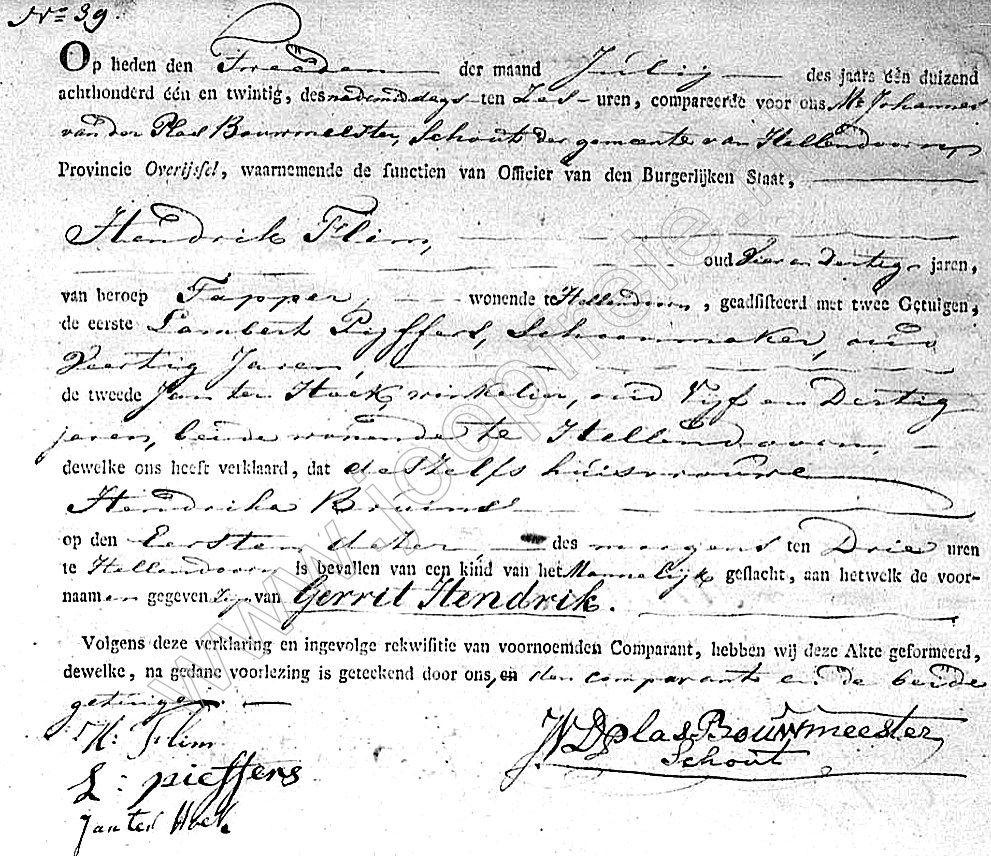 No. 39.
Op heden den Tweeden der maand Julij des jaars één duizend
achthonderd één en twintig, des nademiddags ten Zes uren, compareerde voor ons, Mr. Johannes
van der Plas Bouwmeester, Schout der gemeente van Hellendoorn,
Provincie Overijssel, waarnemende de functien van Officier van den Burgerlijken Staat,
Hendrik Flim,
oud Vier en Dertig jaren,
van beroep Tapper, wonende te Hellendoorn, geadsisteerd met twee Getuigen,
de eerste Lambert Pyffers, Schoenmaker, oud
Veertig Jaren,
de tweede Jan ten Hoek, winkelier, oud Vijf en Dertig
jaren, beide wonende te Hellendoorn,
dewelke ons heeft verklaard, dat deszelfs huisvrouwe
Hendrika Bruins
op den Eersten dezer des morgens ten Drie uren
te Hellendoorn is bevallen van een kind van het Mannelijk geslacht, aan hetwelk de voor-
naamen gegeven zijn van Gerrit Hendrik.
Volgens deze verklaring en ingevolge rekwisitie van voornoemden Comparant, hebben wij deze Akte geformeerd,
dewelke, na gedane voorlezing is geteekend door ons, en den comparant en de beide
getuigen.
H: Flim
L: pieffers
Jan ten Hoek.
JVDplas Bouwmeester
Schout
www.jcopmeie.nl